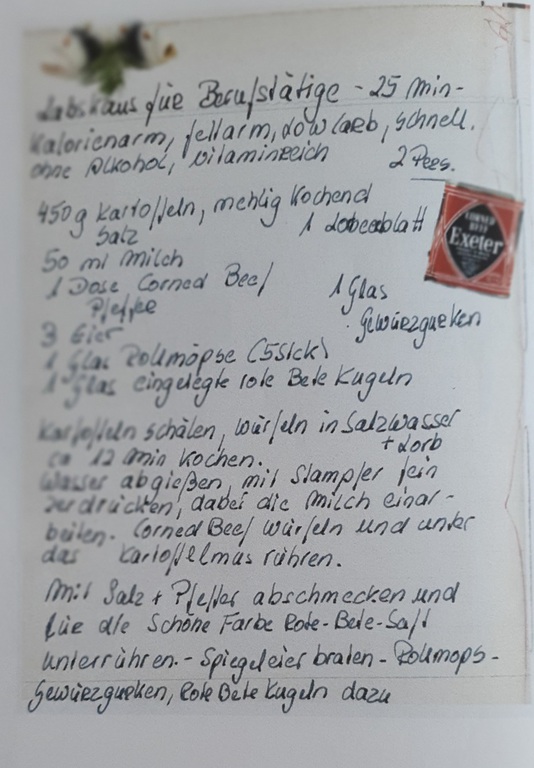 Labskaus für Berufstätige - 25 min-
Kalorienarm, fettarm, Low Carb, schnell.
ohne Alkohol, vitaminreich
2 Pers.
450g Kartoffeln, mehlig kochend
Salz
1 Lorbeerblatt
50 ml Milch
1 Dose Corned Beef
Pfeffer
3 Eier
1 Glas
Gewürzgurken
CORNED
BEEF
Exeter
1 Glas Rollmöpse (5 Stck)
1 Glas eingelegte rote Bete Kugeln
Kartoffeln schälen, würfeln in Salzwasser
+ Lorb
ca 12 min kochen.
Wasser abgießen, mit Stampfer fein
zerdrücken, dabei die Milch einar-
beiten. Corned Beef würfeln und unter
das Kartoffelmus rühren.
Mit Salz + Pfeffer abschmecken und
für die schöne Farbe Rote-Bete-Saft
unterrühren. - Spiegeleier braten - Rollmops -
Gewürzgurken, Rote Bete Kugeln dazu